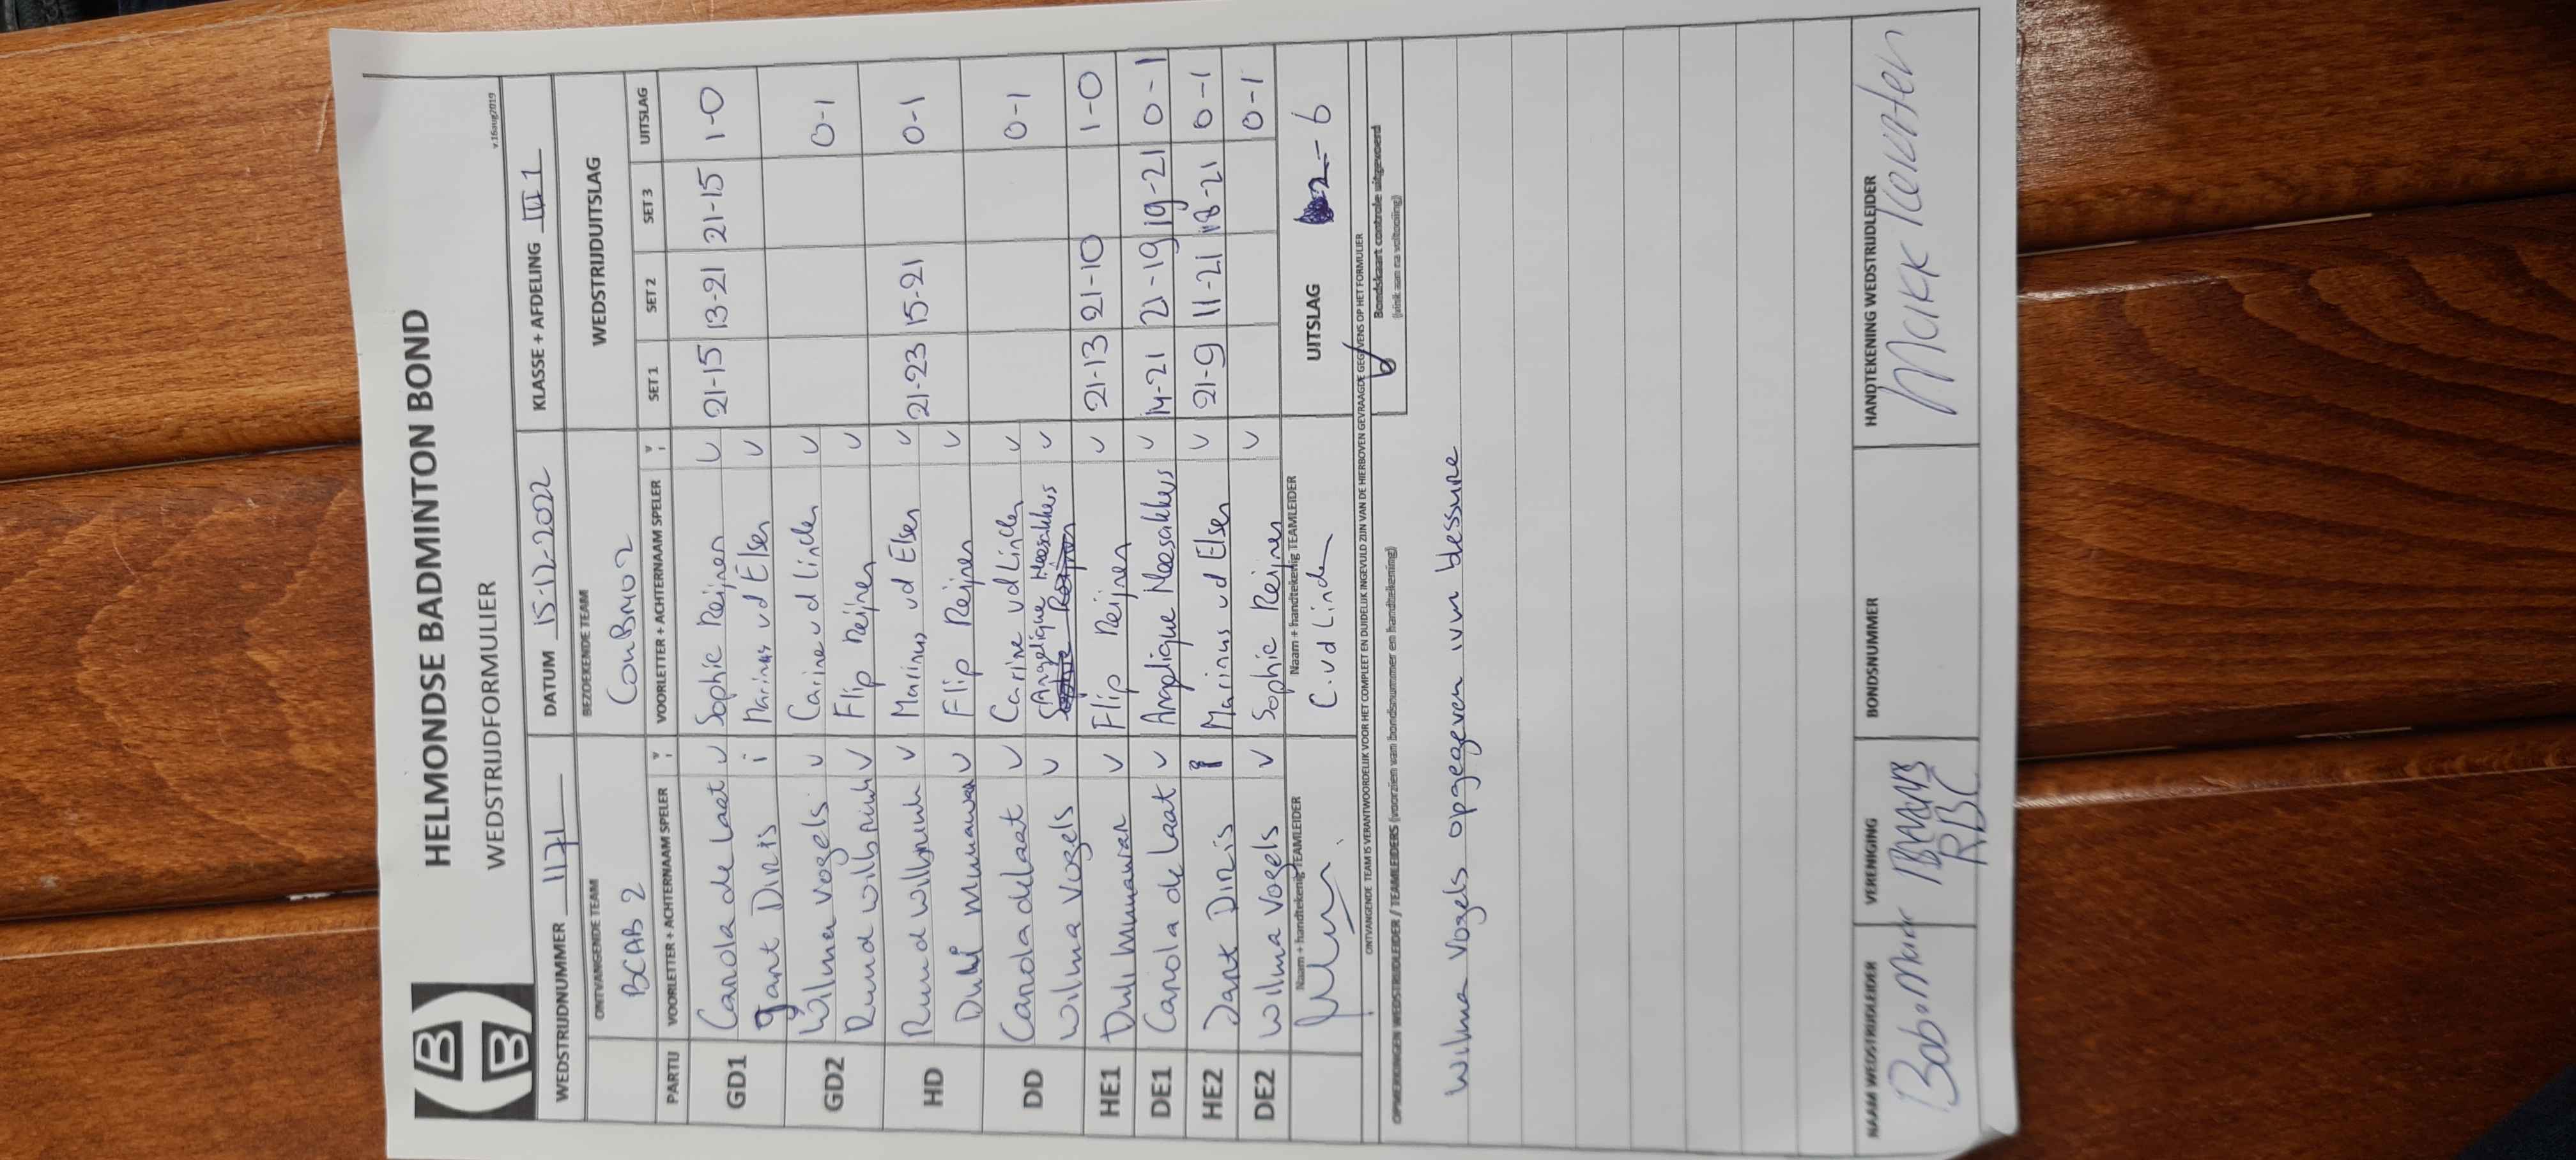 HELMONDSE BADMINTON BOND
WEDSTRIJDFORMULIER
v.16aug2019
WEDSTRIJDNUMMER 1171 DATUM 15-12-2022 KLASSE + AFDELING III 1
ONTVANGENDE TEAM BEZOEKENDE TEAM WEDSTRIJDUITSLAG
BCAB 2 ConBrio 2
PARTIJ VOORLETTER + ACHTERNAAM SPELER VOORLETTER + ACHTERNAAM SPELER SET 1 SET 2 SET 3 UITSLAG
GD1 Carola de Laat v Sophie Reijnen v 21-15 13-21 21-15 1-0
Jant Dinis i Marinus vd Elsen v
GD2 Wilma Vogels v Carine v d Linden v 0-1
Ruud Wilbrink v Flip Reijnen v
HD Ruud Wilbrink v Marinus vd Elsen v 21-23 15-21 0-1
Munawar v Flip Reijnen v
DD Carola de Laat v Carine vd Linden v 0-1
Wilma Vogels v Angelique Meesakkers v
HE1 Munawar v Flip Reijnen v 21-13 21-10 1-0
DE1 Carola de Laat v Angelique Meesakkers v 14-21 21-19 19-21 0-1
HE2 Jant Dinis i Marinus vd Elsen v 21-9 11-21 18-21 0-1
DE2 Wilma Vogels v Sophie Reijnen v 0-1
Naam + handtekenig TEAMLEIDER Naam + handtekenig TEAMLEIDER UITSLAG 2-6
C. vd Linden
ONTVANGENDE TEAM IS VERANTWOORDELIJK VOOR HET COMPLEET EN DUIDELIJK INGEVULD ZIJN VAN DE HIERBOVEN GEVRAAGDE GEGEVENS OP HET FORMULIER
OPMERKINGEN WEDSTRIJDLEIDER / TEAMLEIDERS (voorzien van bondsnummer en handtekening) Bondskaart controle uitgevoerd
(vink aan na voltooiing)
Wilma Vogels opgegeven ivm blessure
NAAM WEDSTRIJDLEIDER VERENIGING BONDSNUMMER HANDTEKENING WEDSTRIJDLEIDER
RBC